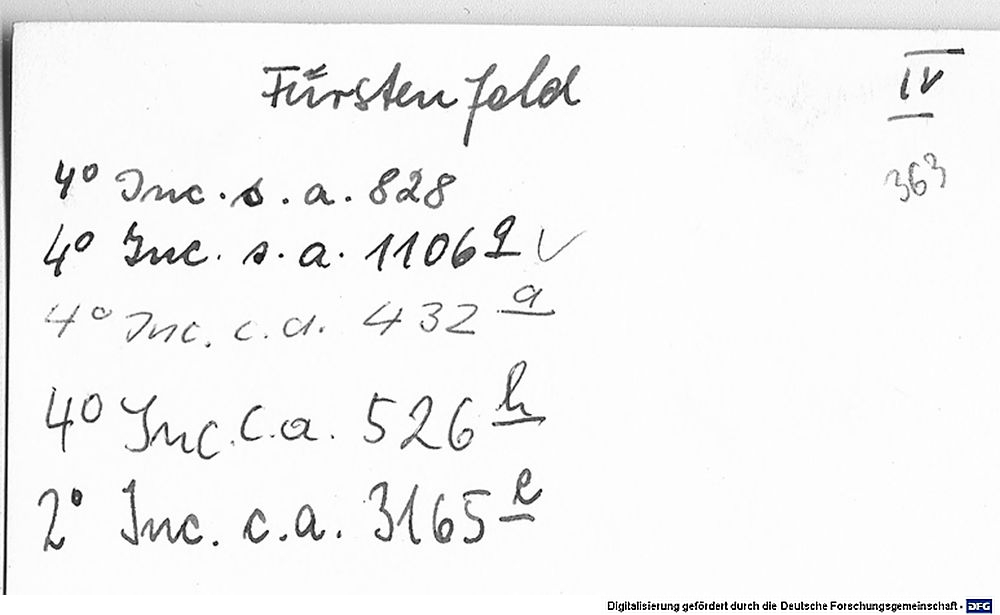 Fürstenfeld
IV
363
4° Inc. s. a. 828
4° Inc. s. a. 1106 q
4° Inc. c. a. 432 a
4° Inc. c. a. 526 h
2° Inc. c. a. 3165 e
Digitalisierung gefördert durch die Deutsche Forschungsgemeinschaft - DFG